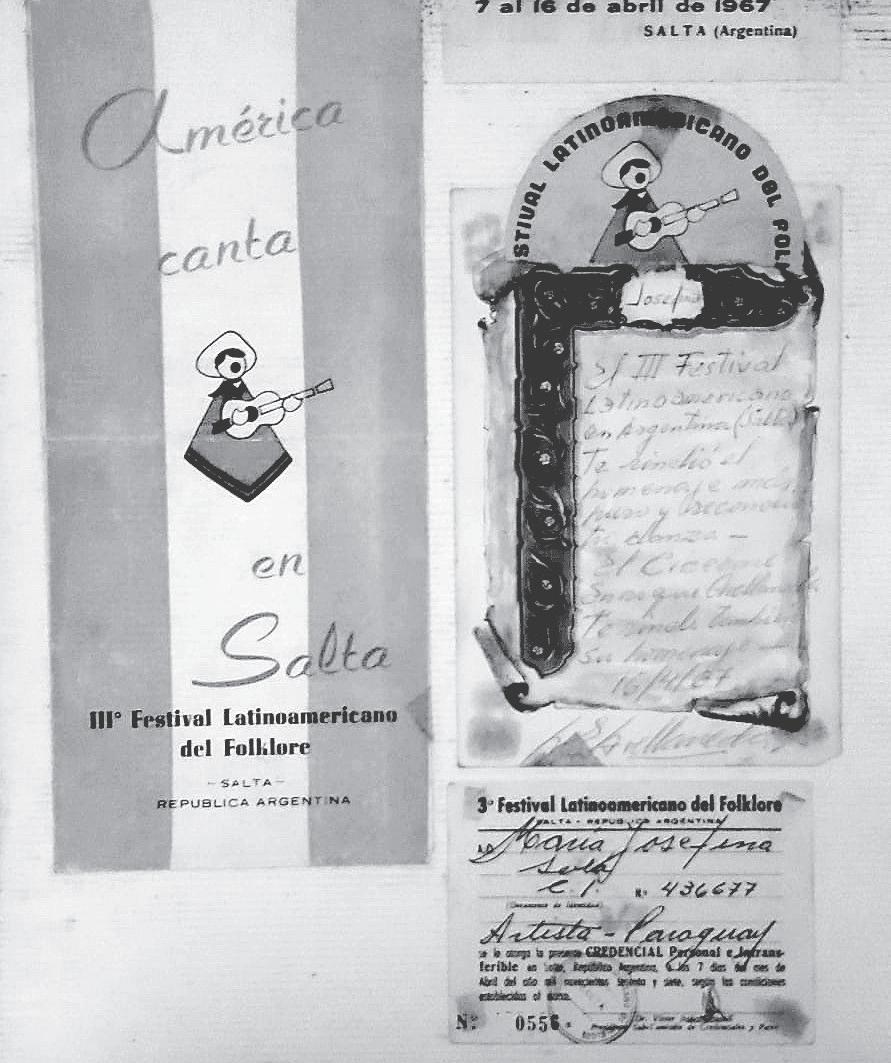 América
canta
en
Salta
III° Festival Latinoamericano
del Folklore
- SALTA -
REPUBLICA ARGENTINA
7 al 16 de abril de 1967
SALTA (Argentina)
STIVAL LATINOAMERICANO DEL FOLK
Josefina
El III Festival
Latinoamericano
en Argentina (Salta)
Te rindió el
homenaje más
puro y
tu danza —
El
Enrique Avellaneda
te rinde también
su homenaje —
16/4/67
Avellaneda
3° Festival Latinoamericano del Folklore
SALTA - REPUBLICA ARGENTINA
María Josefina
C. I. N° 436677
(Documento de Identidad)
Artista - Paraguay
se le otorga la presente CREDENCIAL Personal e Intrans-
ferible en Salta, República Argentina, a los 7 días del mes de
Abril del año mil novecientos sesenta y siete, según las condiciones
establecidas al dorso.
N° 0556
Dr. Víctor
Presidente Sub-Comisión de Credenciales y Pases